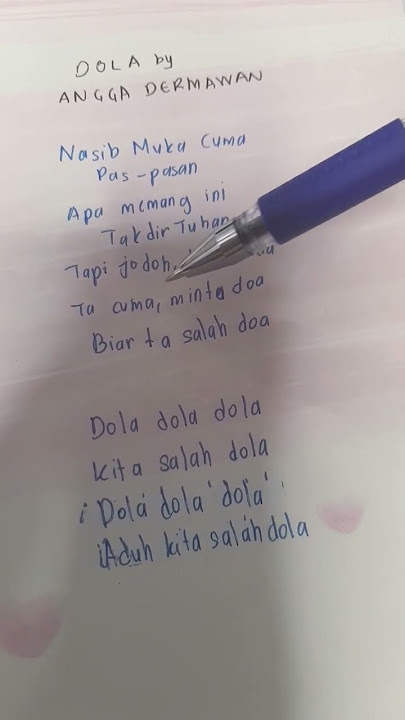 DOLA by
ANGGA DERMAWAN
Nasib Muka Cuma
Pas-pasan
Apa memang ini
Takdir Tuhan
Tapi jodoh
Ta cuma, minta doa
Biar ta salah doa
Dola dola dola
Kita salah dola
Dola dola dola
Aduh kita salah dola